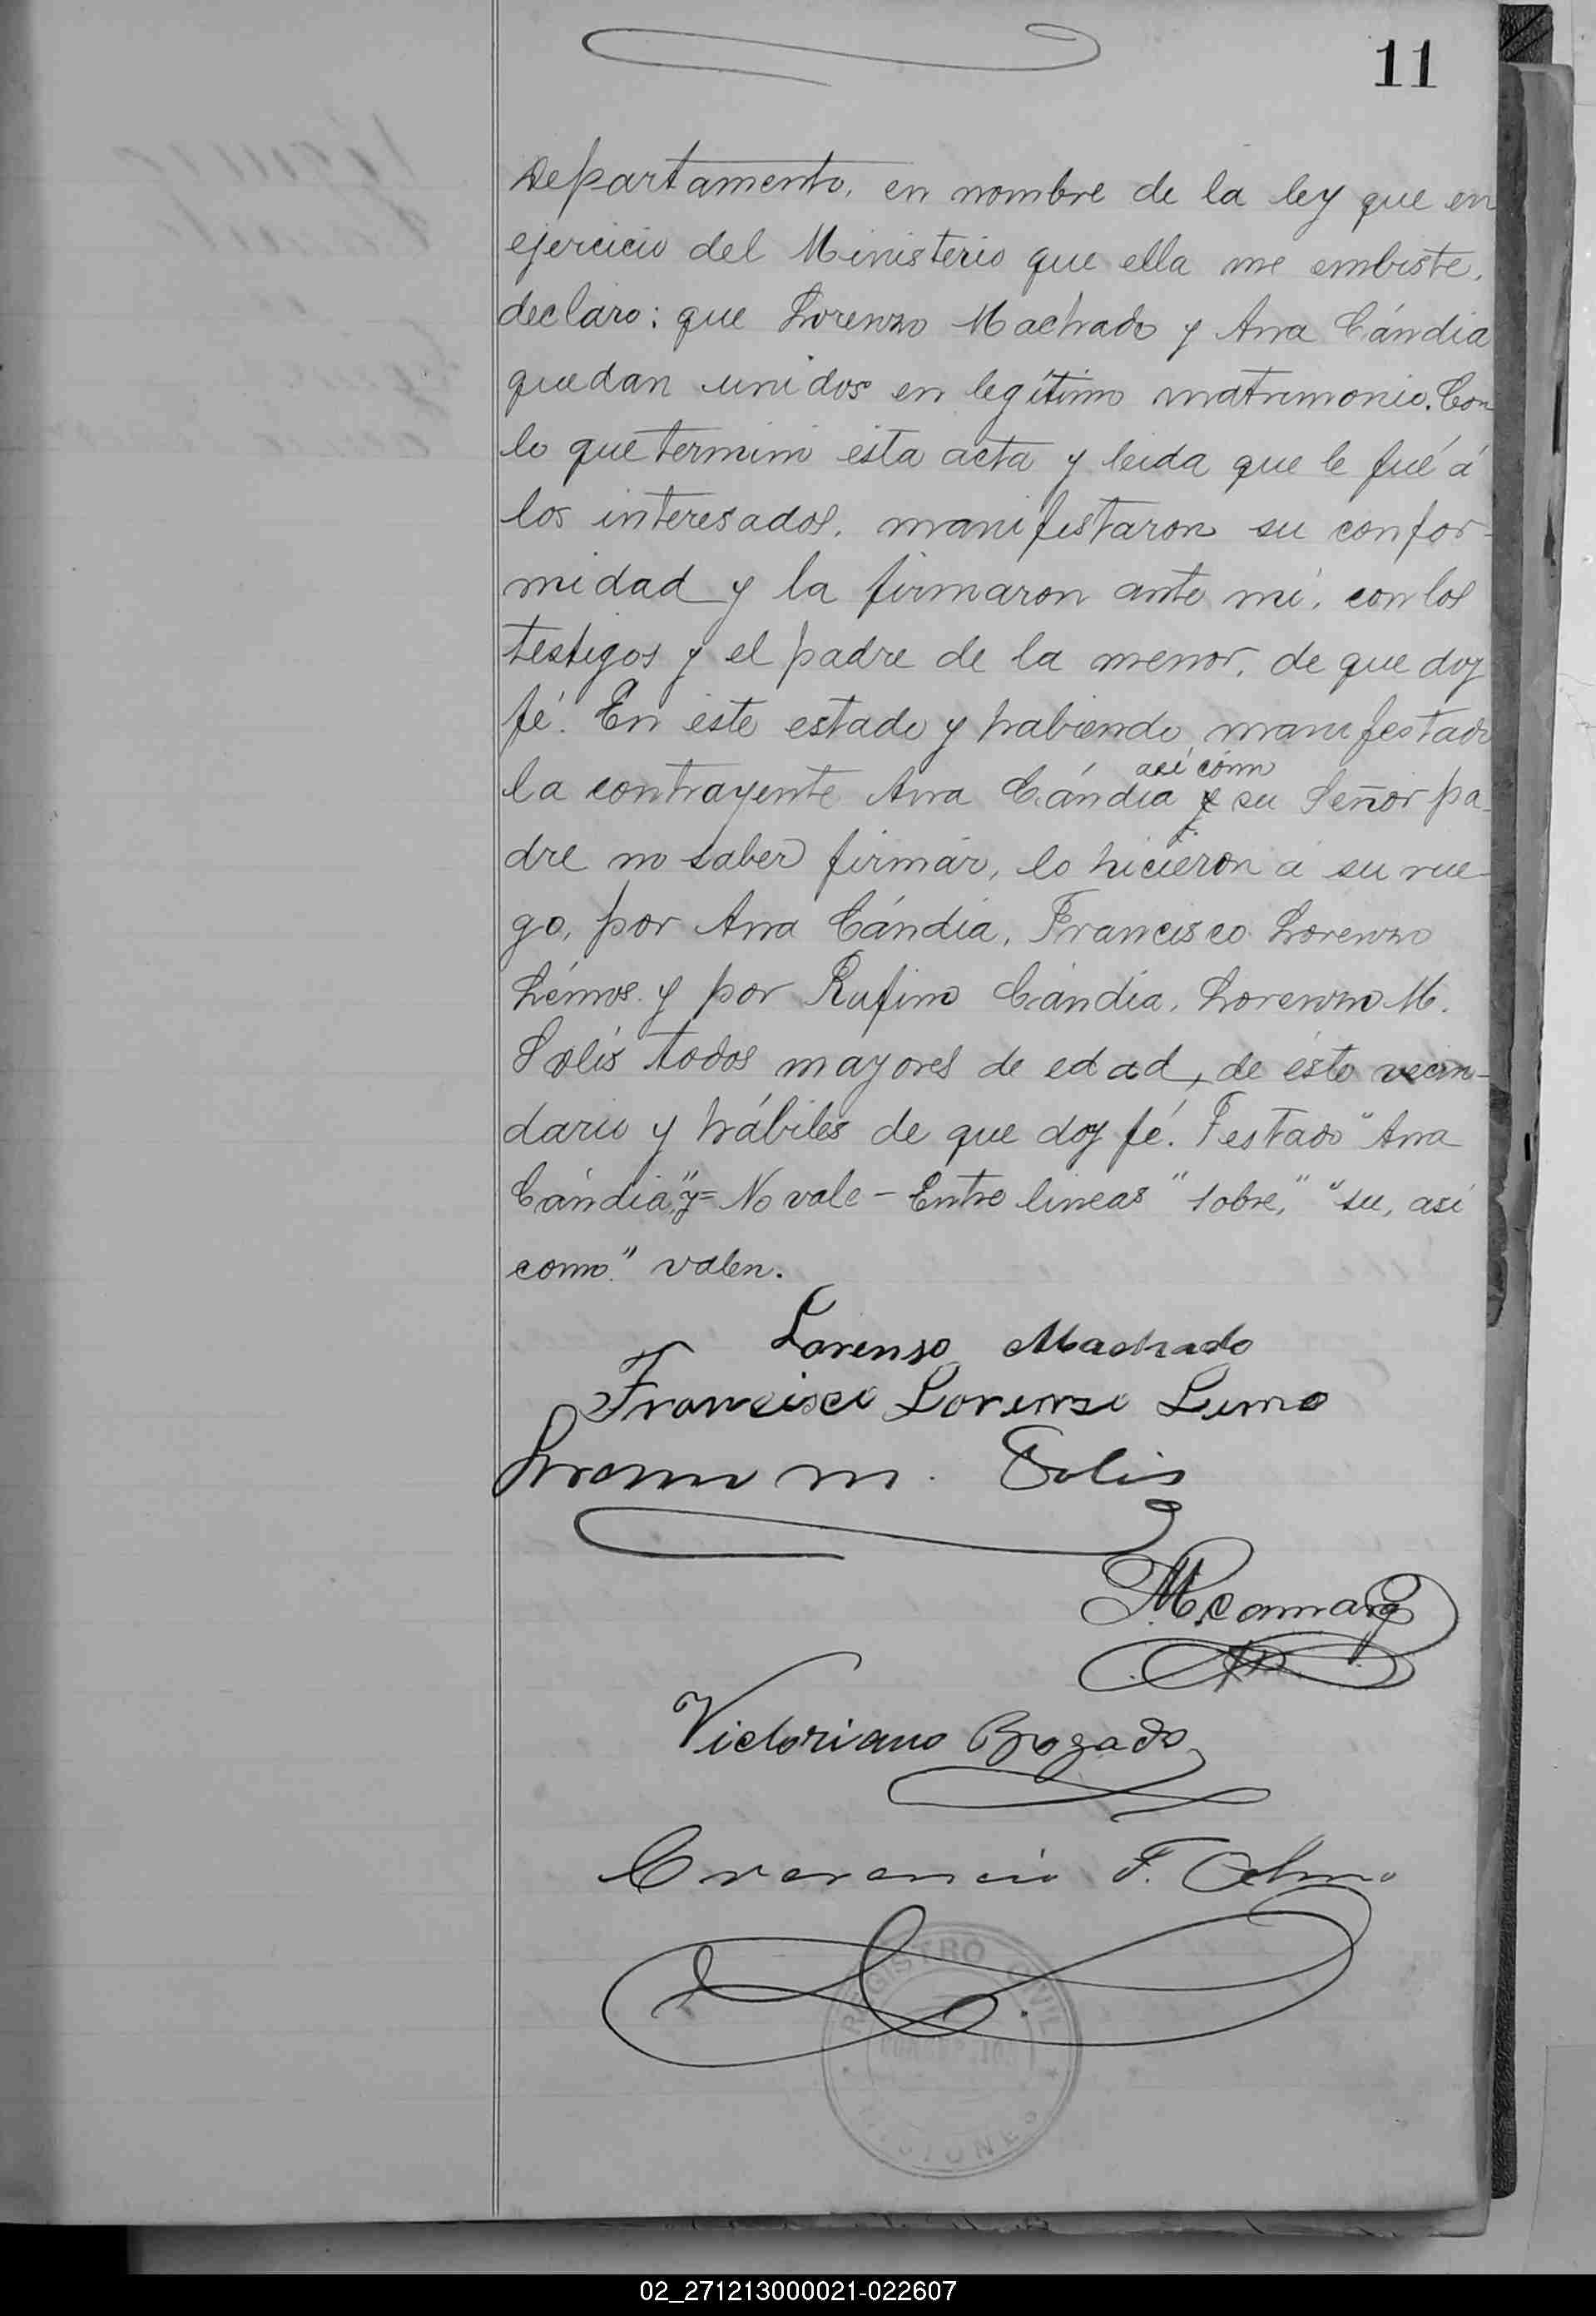 11
Departamento, en nombre de la ley que en
ejercicio del Ministerio que ella me embiste,
declaro: que Lorenzo Machado y Ana Cándia
quedan unidos en legítimo matrimonio. Con
lo que terminó esta acta y leida que le fué á
los interesados, manifestaron su confor-
midad y la firmaron ante mí, con los
testigos y el padre de la menor, de que doy
fé. En este estado y habiendo manifestado
así como
la contrayente Ana Cándia y su Señor pa-
dre no saber firmar, lo hicieron á su rue-
go, por Ana Cándia, Francisco Lorenzo
Lémos y por Rufino Cándia, Lorenzo M.
Solís todos mayores de edad, de éste vecin-
dario y hábiles de que doy fé. Testado "Ana
Cándia", "y" = No vale - Entre lineas "sobre," "su, así
como" valen.
Lorenso Machado
Francisco Lorenzo Lemo
Lorenzo M. Solis
Victoriano Bogado
F.
REGISTRO CIVIL
MISIONES
02_271213000021-022607